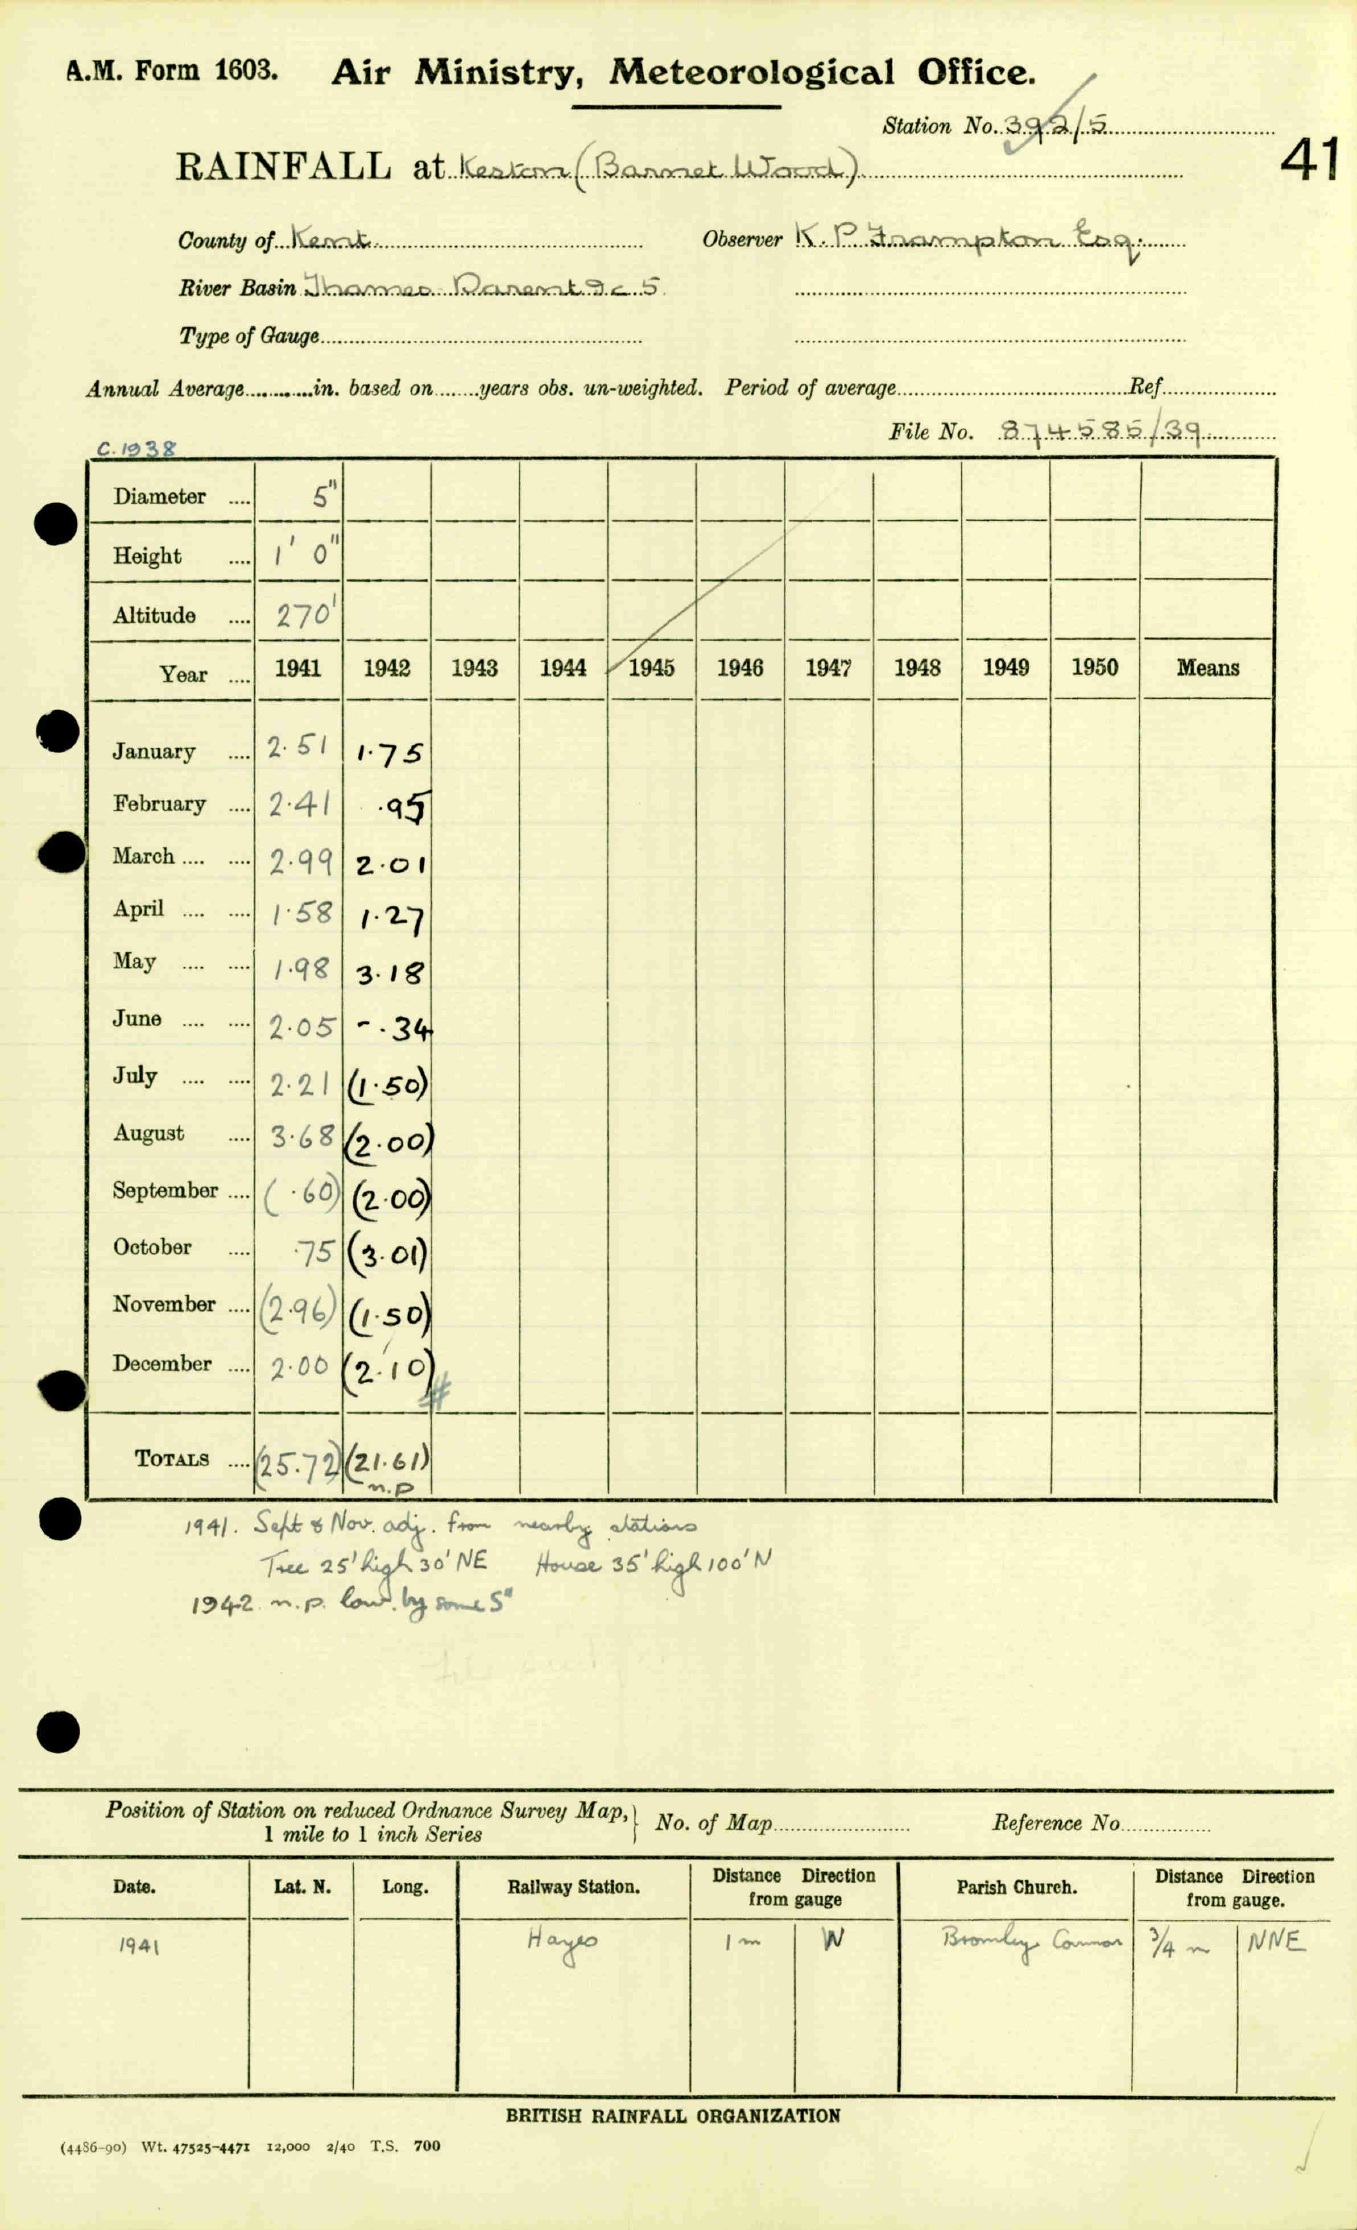 A.M. Form 1603. Air Ministry, Meteorological Office.
Station No. 392/5
41
RAINFALL at Keston (Barnet Wood)
County of Kent Observer K. P. Frampton Esq.
River Basin Thames Darent &c 5
Type of Gauge
Annual Average in. based on years obs. un-weighted. Period of average Ref.
File No. 874585/39
C. 1938
Diameter 5"
Height 1' 0"
Altitude 270'
Year 1941 1942 1943 1944 1945 1946 1947 1948 1949 1950 Means
January 2.51 1.75
February 2.41 .95
March 2.99 2.01
April 1.58 1.27
May 1.98 3.18
June 2.05 -.34
July 2.21 (1.50)
August 3.68 (2.00)
September (.60) (2.00)
October .75 (3.01)
November (2.96) (1.50)
December 2.00 (2.10) #
TOTALS (25.72) (21.61)
n.p
1941. Sept & Nov. adj. from nearby stations
Tree 25' high 30' NE House 35' high 100' N
1942 n.p. low. by some 5"
Position of Station on reduced Ordnance Survey Map, } No. of Map Reference No
1 mile to 1 inch Series
Date. Lat. N. Long. Railway Station. Distance Direction from gauge Parish Church. Distance Direction from gauge.
1941 Hayes 1 m W Bromley Common 3/4 m NNE
BRITISH RAINFALL ORGANIZATION
(4486-90) Wt. 47525-4471 12,000 2/40 T.S. 700